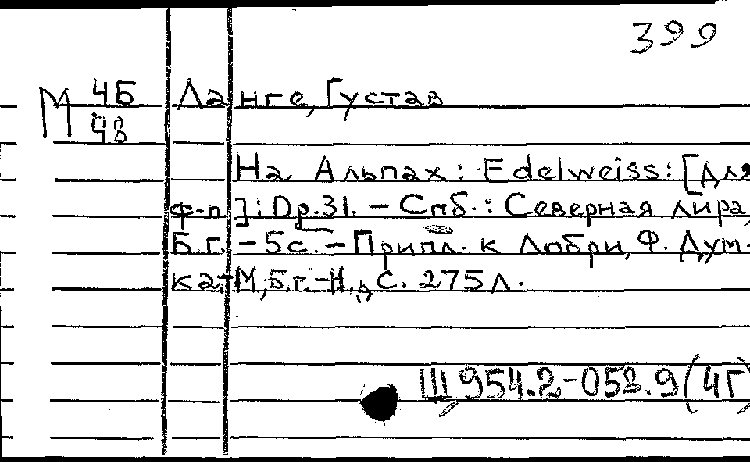 399
М 4Б Ланге, Густав
48
На Альпах: Edelweiss: [Для
ф-п]: Op.31. - Спб.: Северная лира,
Б.г. - 5с. - Припл. к Лобри, Ф. Дум-
ка. - М, Б.г. - Н., С. 275л.
Щ954.2-052.9(4Г)